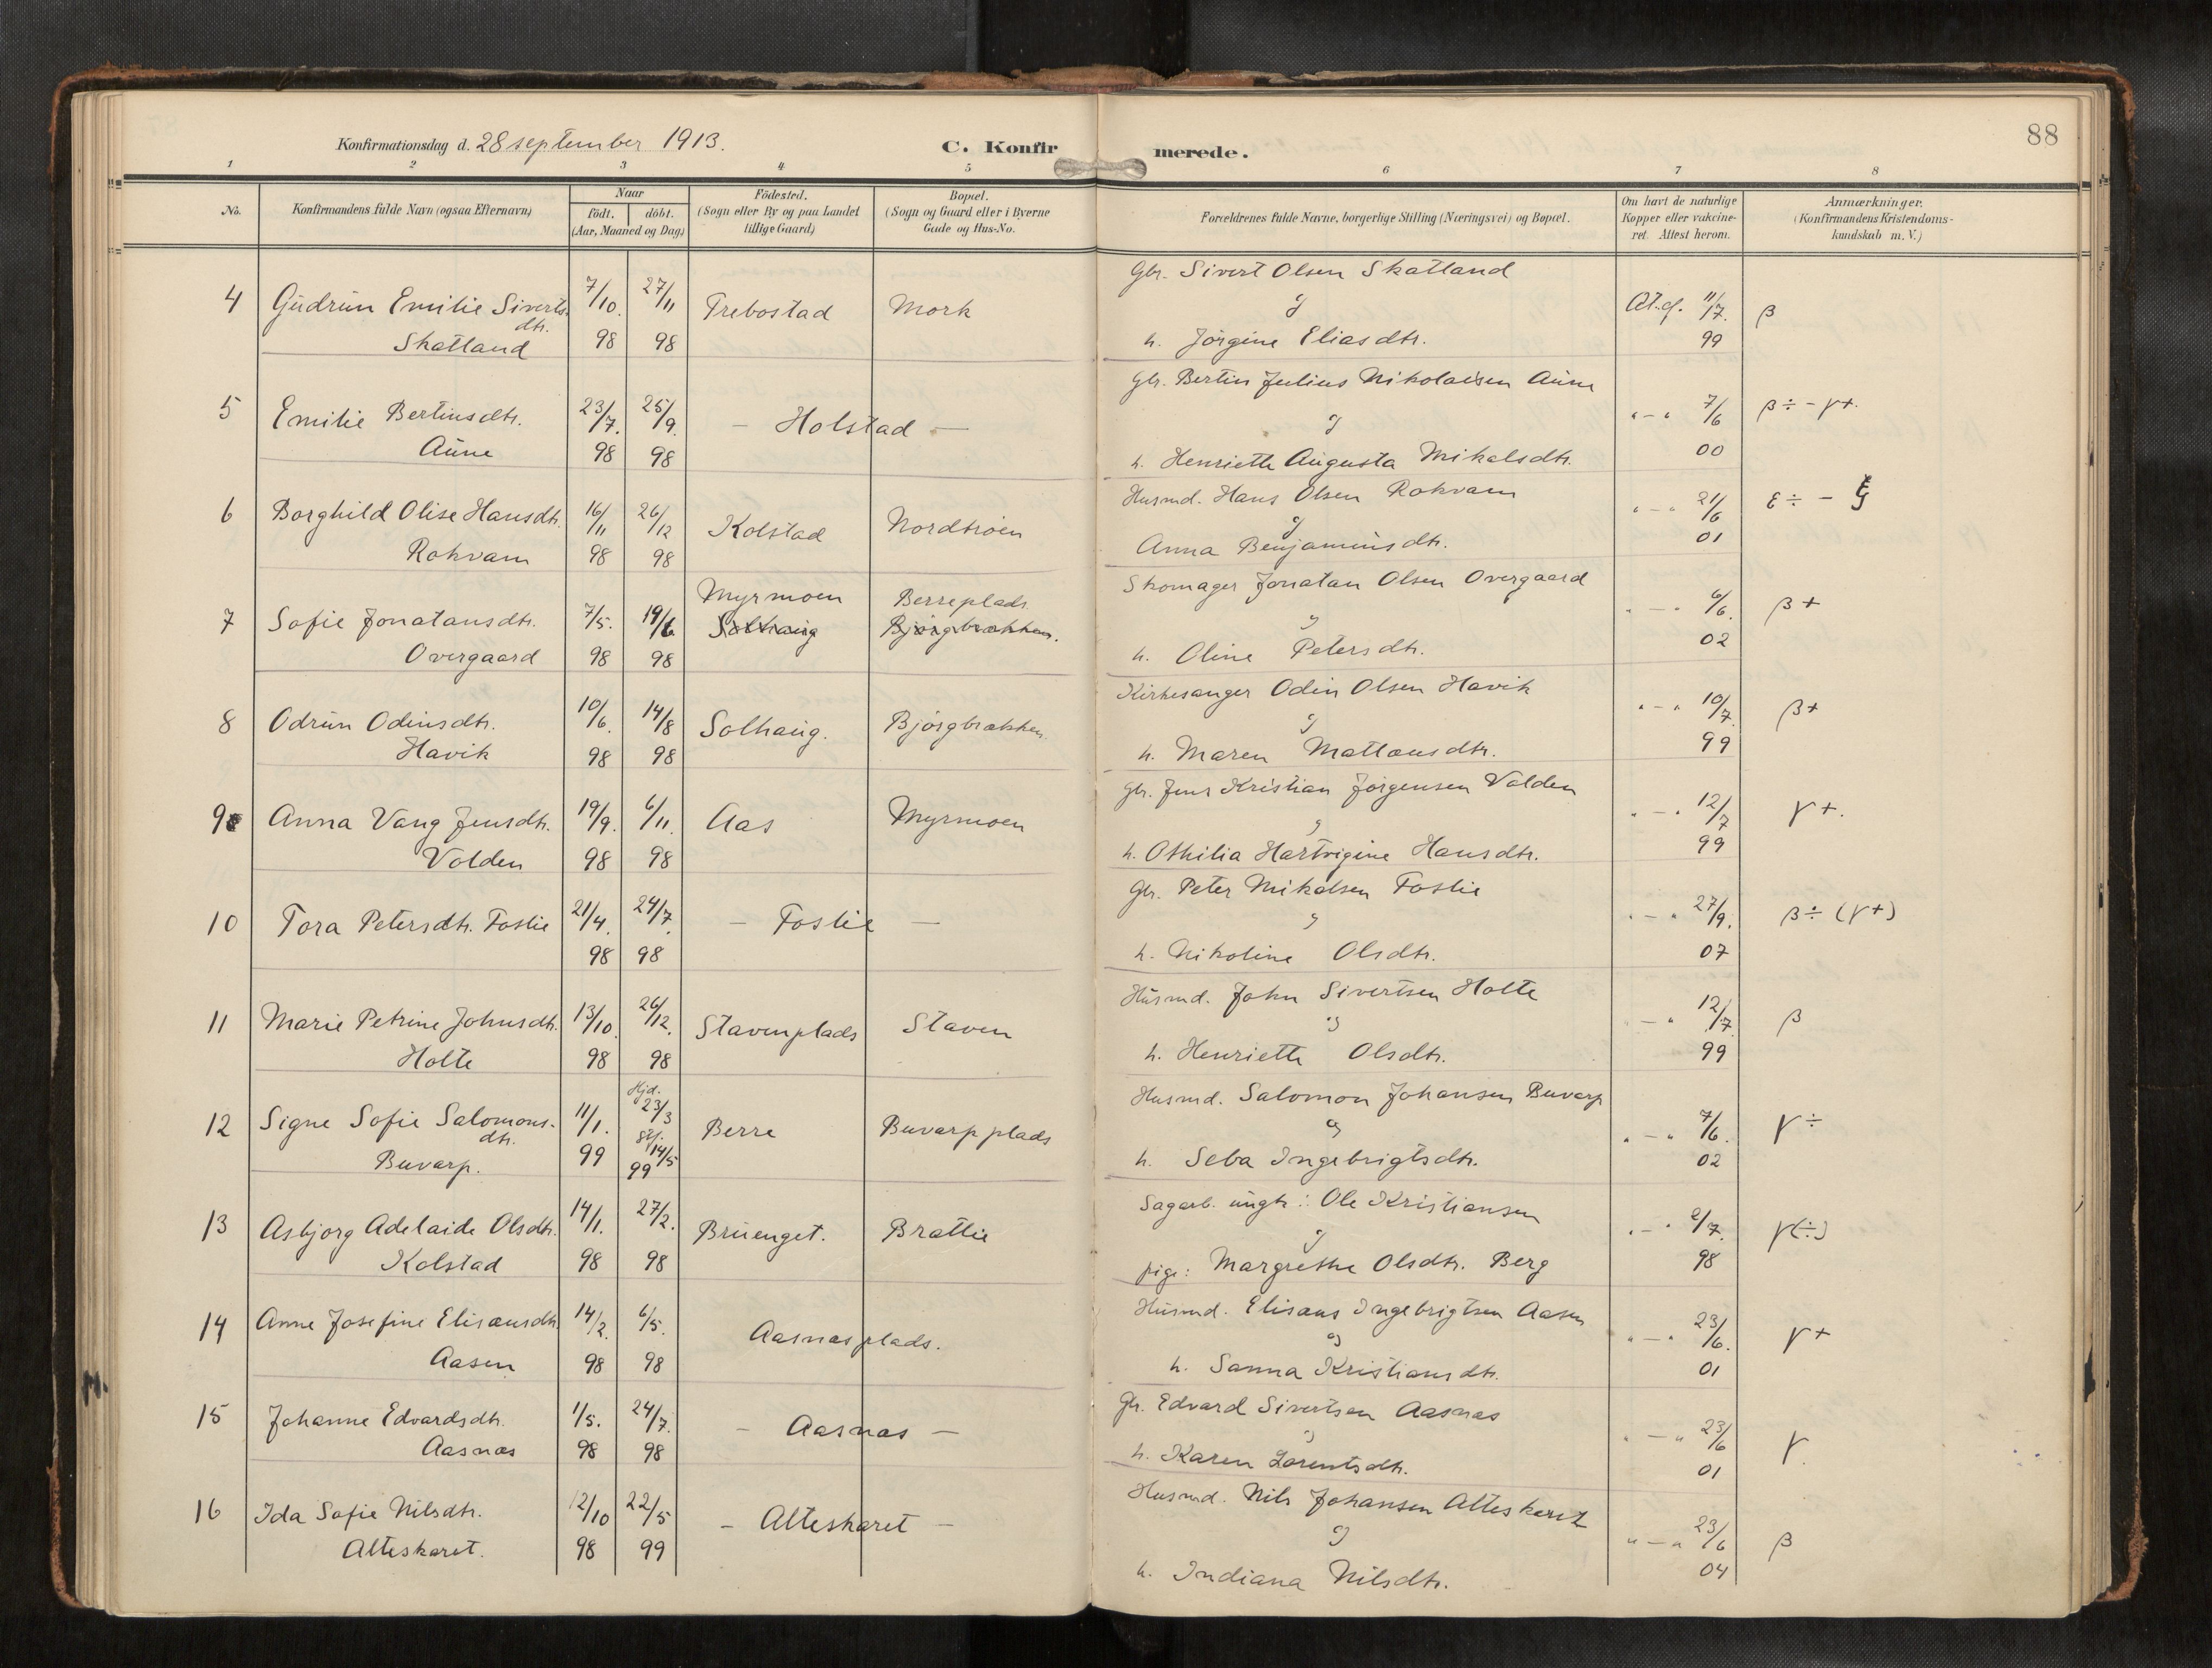 Konfirmationsdag d. 28 september 1913.
C. Konfirmerede.
88
1 2 3 4 5 6 7 8
No.
Konfirmandens fulde Navn (ogsaa Efternavn)
Naar
födt. döbt.
(Aar, Maaned og Dag)
Födested.
(Sogn eller By og paa Landet
tillige Gaard)
Bopæl.
(Sogn og Gaard eller i Byerne
Gade og Hus-No.
Forældrenes fulde Navne, borgerlige Stilling (Næringsvei) og Bopæl.
Om havt de naturlige
Kopper eller vakcine-
ret. Attest herom.
Anmærkninger.
(Konfirmandens Kristendoms-
kundskab m. V.)
4 Gudrun Emilie Siverts-
dtr.
Skatland
7/10. 98
27/11 98
Trebostad
Mork
Gbr. Sivert Olsen Skatland
og
h. Jörgine Eliasdtr.
At. af. 11/7. 99
β
5 Emilie Bertinsdtr.
Aune
23/7. 98
25/9. 98
– Holstad –
Gbr. Bertin Julius Nikolaisen Aune
og
h. Henriette Augusta Mikalsdtr.
" – " 7/6 00
β ÷ - γ+.
6 Borghild Olise Hansdtr.
Rokvam
16/11 98
26/12 98
Kolstad
Nordtröen
Husmd. Hans Olsen Rokvam
og
Anna Benjaminsdtr.
" – " 21/6 01
ε ÷ –
7 Sofie Jonatansdtr.
Overgaard
7/5. 98
19/6. 98
Myrmoen
Solhaug
Berreplads
Bjørgbrækken.
Skomager Jonatan Olsen Overgaard
og
h. Oline Petersdtr.
" – " 6/6. 02
β +
8 Odrun Odinsdtr.
Havik
10/6. 98
14/8 98
Solhaug.
Bjørgbrækken.
Kirkesanger Odin Olsen Havik
og
h. Maren Mattæusdtr.
" – " 10/7. 99
β+
9 Anna Vang Jensdtr.
Volden
19/9. 98
6/11. 98
Aas
Myrmoen
Gbr. Jens Kristian Jørgensen Volden
og
h. Othilia Hartvigine Hansdtr.
" – " 12/7 99
γ +.
10 Tora Petersdtr. Foslie
21/4. 98
24/7. 98
– Foslie –
Gbr. Peter Mikalsen Foslie
og
h. Nikoline Olsdtr.
" – " 27/9. 07
β ÷ (γ+)
11 Marie Petrine Johnsdtr.
Holte
13/10. 98
26/12. 98
Stavenplads
Staven
Husmd. John Sivertsen Holte
og
h. Henriette Olsdtr.
" – " 12/7 99
β
12 Signe Sofie Salomons-
dtr.
Buvarp.
11/1. 99
Hjd.
23/3
Stf.
14/5
99
Berre
Buvarpplads
Husmd. Salomon Johansen Buvarp
og
h. Seba Ingebrigtsdtr.
" – " 7/6. 02
γ ÷
13 Asbjorg Adelaide Olsdtr.
Kolstad
14/1. 98
27/2. 98
Bruenget.
Brattlie
Sagarb. ungk.: Ole Kristiansen
og
pige: Margrethe Olsdtr. Berg
" – " 2/7. 98
γ(÷)
14 Anne Josefine Elisæusdtr.
Aasen
14/2. 98
6/5. 98
Aasnasplads.
Husmd. Elisæus Ingebrigtsen Aasen
og
h. Sanna Kristiansdtr.
" – " 23/6. 01
γ +
15 Johanne Edvardsdtr.
Aasnas
1/5. 98
24/7. 98
– Aasnas –
Gbr. Edvard Sivertsen Aasnas
og
h. Karen Lorentsdtr.
" – " 23/6 01
γ.
16 Ida Sofie Nilsdtr.
Alteskaret.
12/10 98
22/5 99
– Alteskaret –
Husmd. Nils Johansen Alteskaret
og
h. Indiana Nilsdtr.
" – " 23/6 04
β